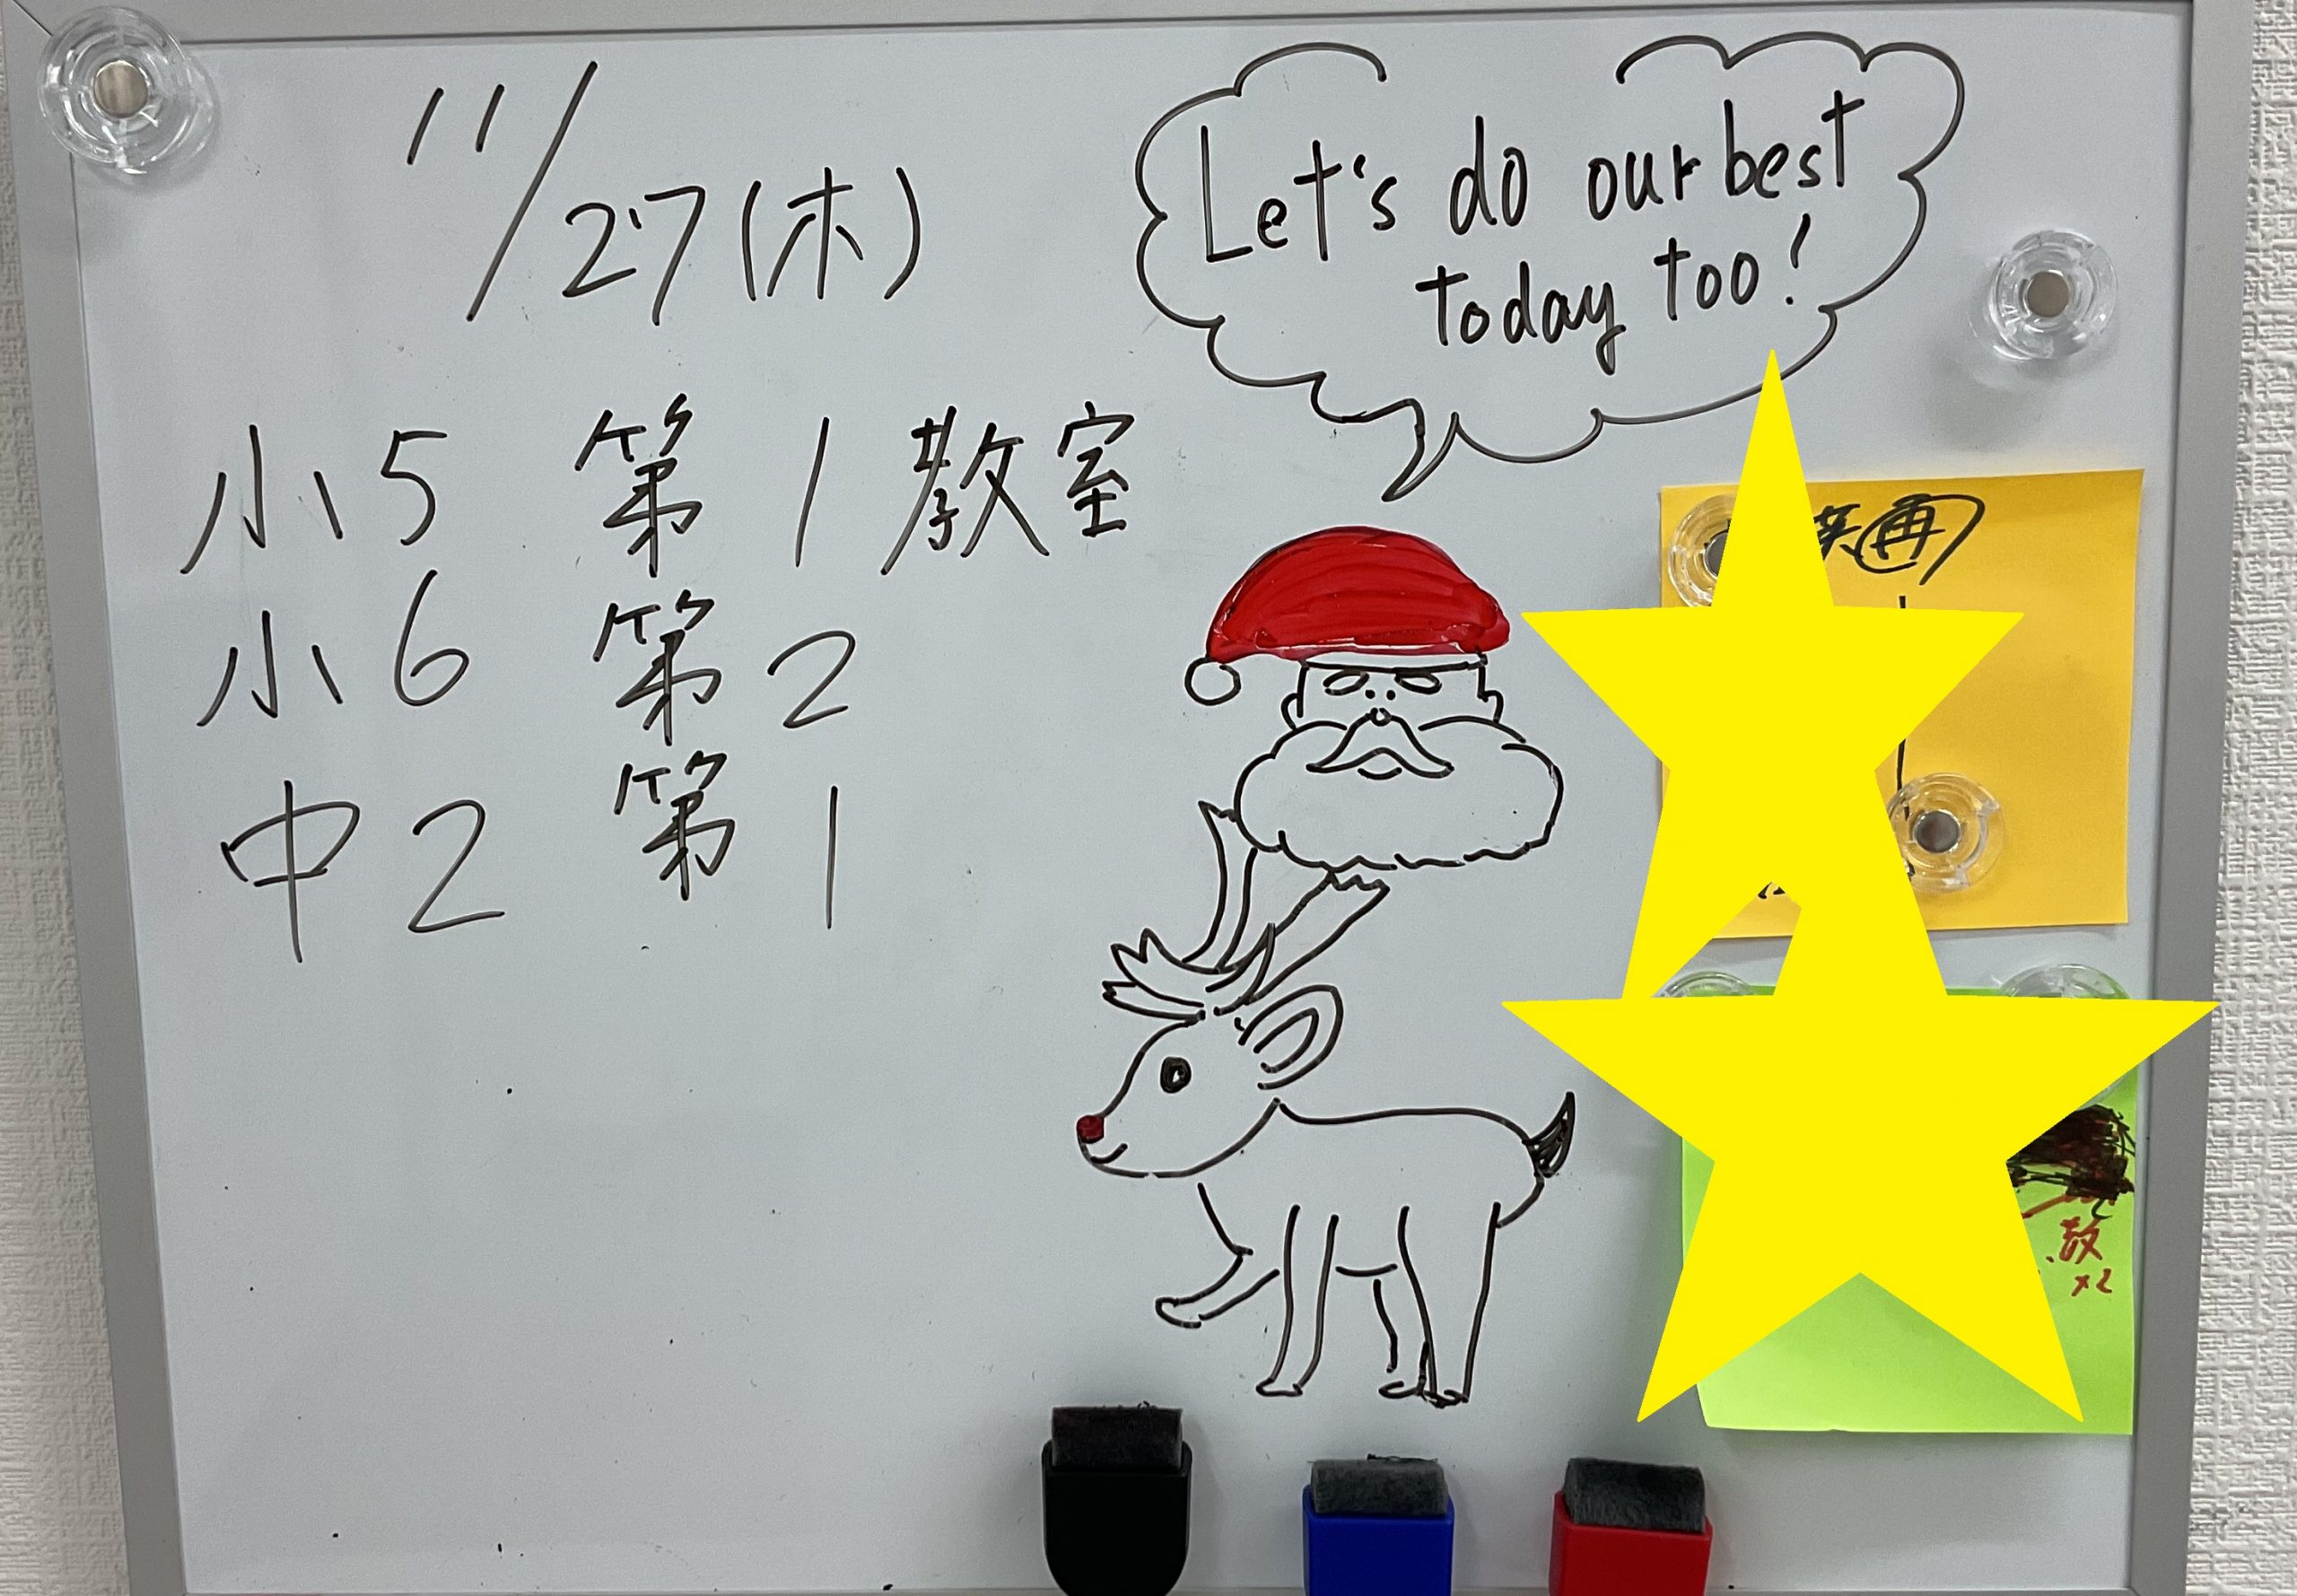 11/27(木)
Let's do our best
today too!
小5 第1教室
小6 第2
中2 第1
英再
数
×2